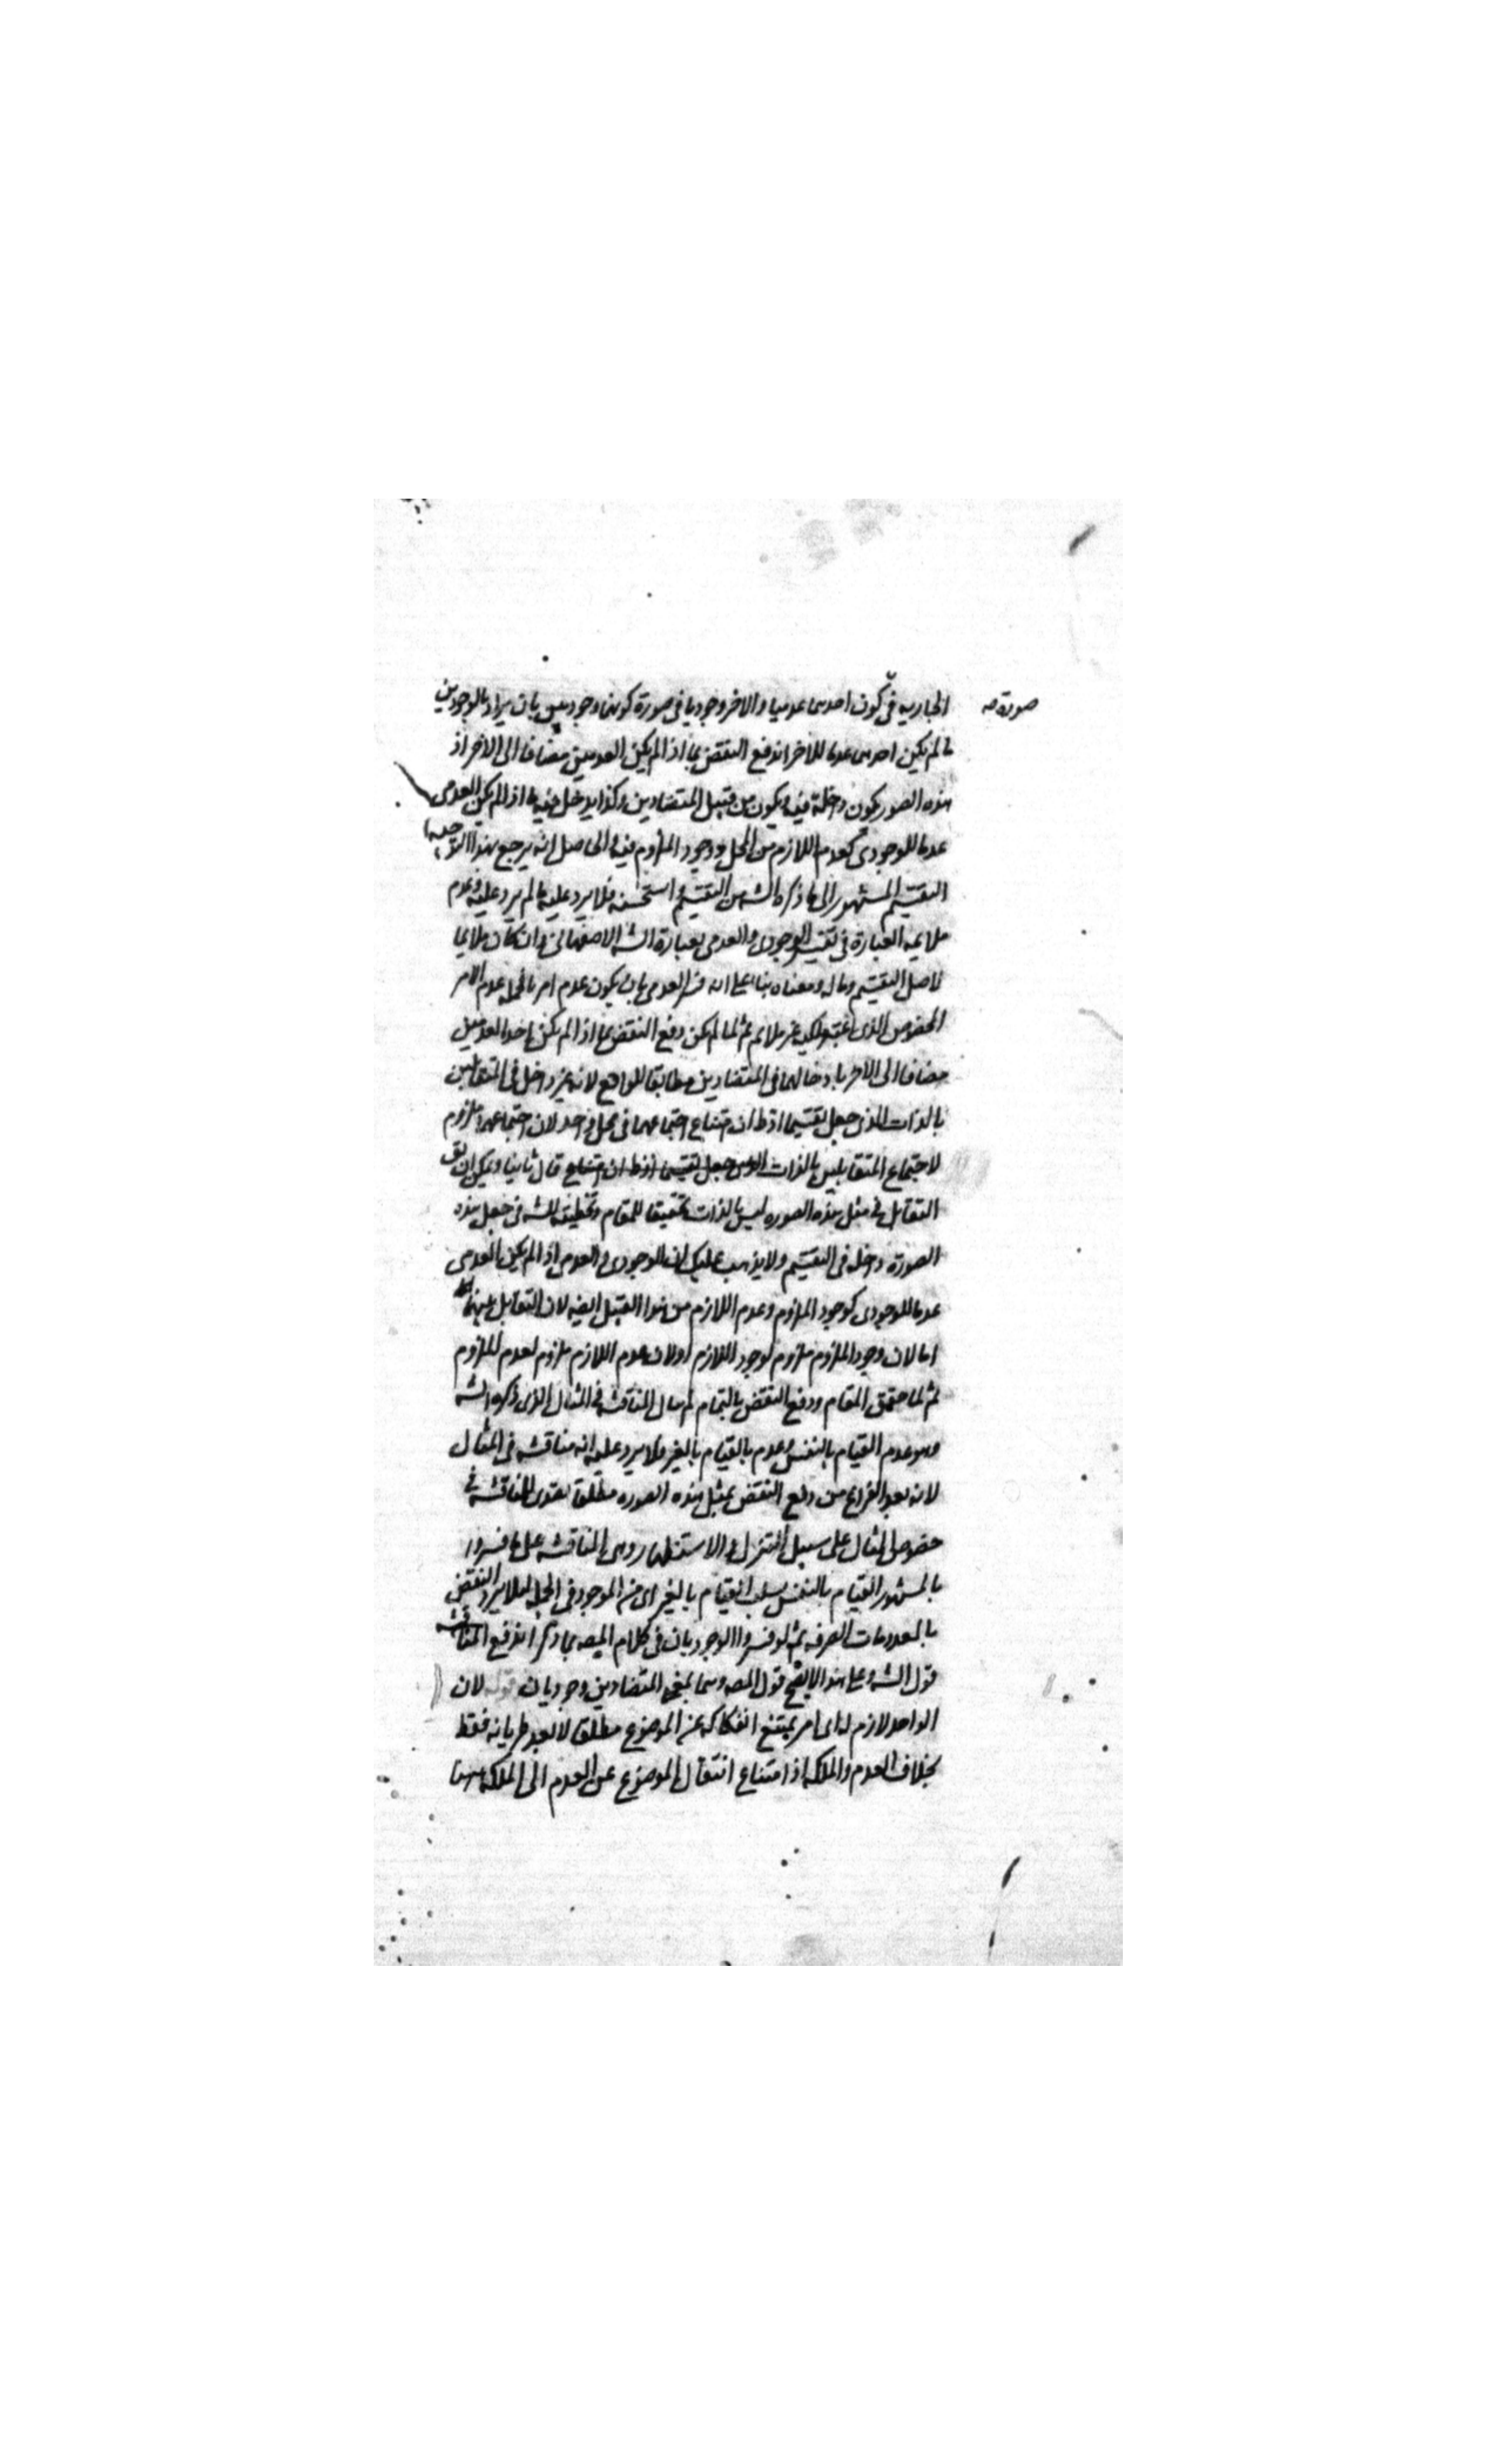 صورة صه
الجارية في كون احدهما عدميا والاخر وجوديا في صورة كونهما وجوديين بان يراد بالوجودين
ما لم يكن احدهما عدما للاخر اندفع النقض بما اذا لم يكن العدميين مضافا الى الاخر اذ
هذه الصور يكون داخلة فيه ويكون من قبيل المتضادين وكذا يدخل فيه ما اذا لم يكن العدمى
عدما للوجودى كعدم اللازم من المحل ووجود الملزوم فيه الحاصل انه يرجع بهذا التوجيه
التقسيم المشهور الى ما ذكره الشه من التقسيم واستحسنه فلا يرد عليه ما لم يرد عليه وعدم
ملايمة العبارة في تفسير الوجودى والعدمى بعبارة الشه الاصفهانى وان كان ملايما
لاصل التقسيم وماله ومعناه بناء على انه فسر العدمى بان يكون عدم امر بالجملة عدم الامر
المخصوص الذى غير ملايم ثم لما لم يكن دفع النقض بما اذا لم يكن احد العدميين
مضافا الى الاخر بادخالهما في المتضادين مطابقا للواقع لانه غير داخل في المتقابلين
بالذات الذى جعل تقسيما اذ ظ ان امتناع اجتماعهما في محل واحد لان اجتماعهما ملزوم
لاجتماع المتقابلين بالذات الذى جعل تقسيما اذ ظ ان امتناع قال ثانيا ويمكن ان يق
التقابل في مثل هذه الصوره ليس بالذات تحقيقا للمقام وتخطيئة للشه في جعل هذه
الصورة داخله في التقسيم ولا يذهب عليك ان الوجودى والعدمى اذا لم يكن العدمى
عدما للوجودى كوجود الملزوم وعدم اللازم من هذا القبيل ايضه لان التقابل بينهما
اما لان وجود الملزوم ملزوم لوجود اللازم او لان عدم اللازم ملزوم لعدم الملزوم
ثم لما حقق المقام ودفع النقض بالتمام مال المناقشه في المثال الذى ذكره الشه
وهو عدم القيام بالنفس وعدم بالقيام بالغير ولا يرد عليه انه مناقشه في المثال
لانه بعد الفراغ من دفع النقض بمثل هذه الصوره مطلقا تصدى للمناقشه في
خصوص المثال على سبيل التنزل والاستظهار وهى المناقشه على ما فسروا
بالمشهور القيام بالنفس بسلب القيام بالغير اى من الموجود في الجملة لئلا يرد النقض
بالمعدومات الصرفه ثم لو فسروا الوجوديان في كلام المصه بما ذكر اندفع المناقشه
قول الشه وعلى هذا لا يصح قول المصه وهما بمعنى المتضادين وجوديان قوله لان
الواحد لازم له اى امر يمتنع انفكاكه عن الموضوع مطلقا لا بعد طريانه فقط
بخلاف العدم والملكه اذ امتناع انتقال الموضوع عن العدم الى الملكه